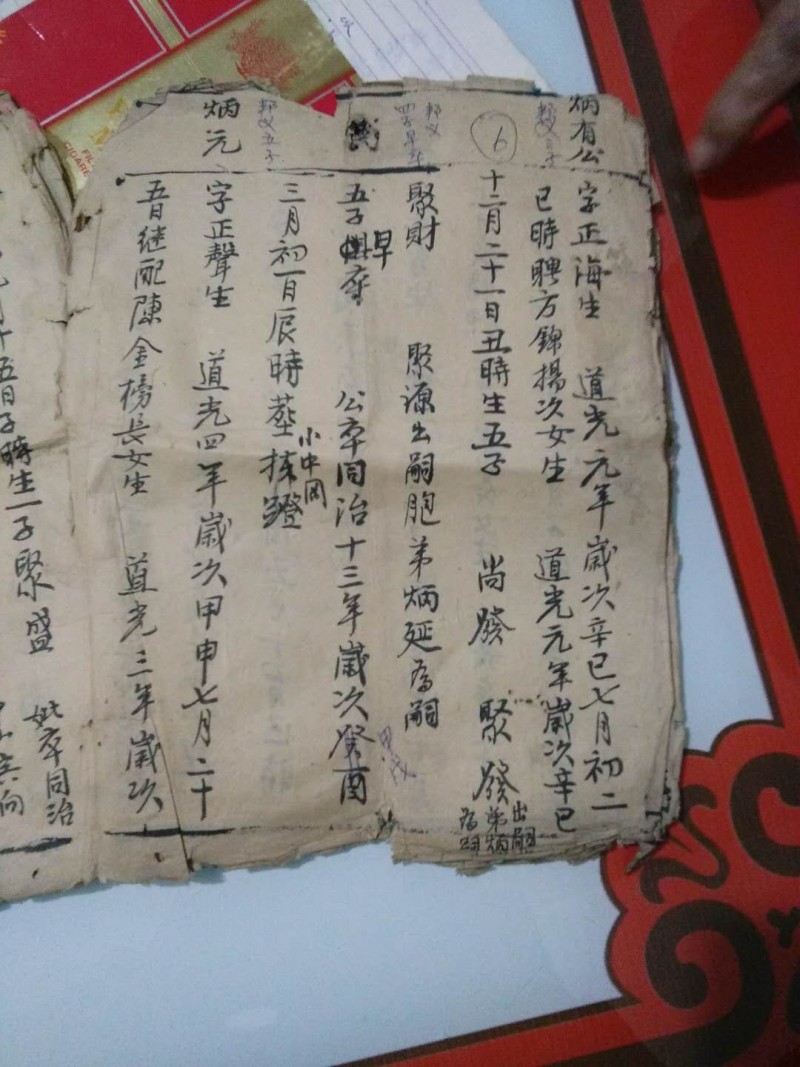 炳有公
字正海生 道光元年歲次辛巳七月初二
巳時聘方錦揚次女生 道光元年歲次辛巳
6
十二月二十一日丑時生五子 尚發 聚發
出嗣
弟炳
為嗣
聚財 聚源出嗣胞弟炳延為嗣
五子俱早卒 公卒同治十三年歲次癸酉
甲戌
三月初一日辰時塟揀蹬
小中岡
炳元
字正聲生 道光四年歲次甲申七月二十
五日继配陳金榜長女生 道光三年歲次
十五日子時生一子聚盛 妣卒同治
向